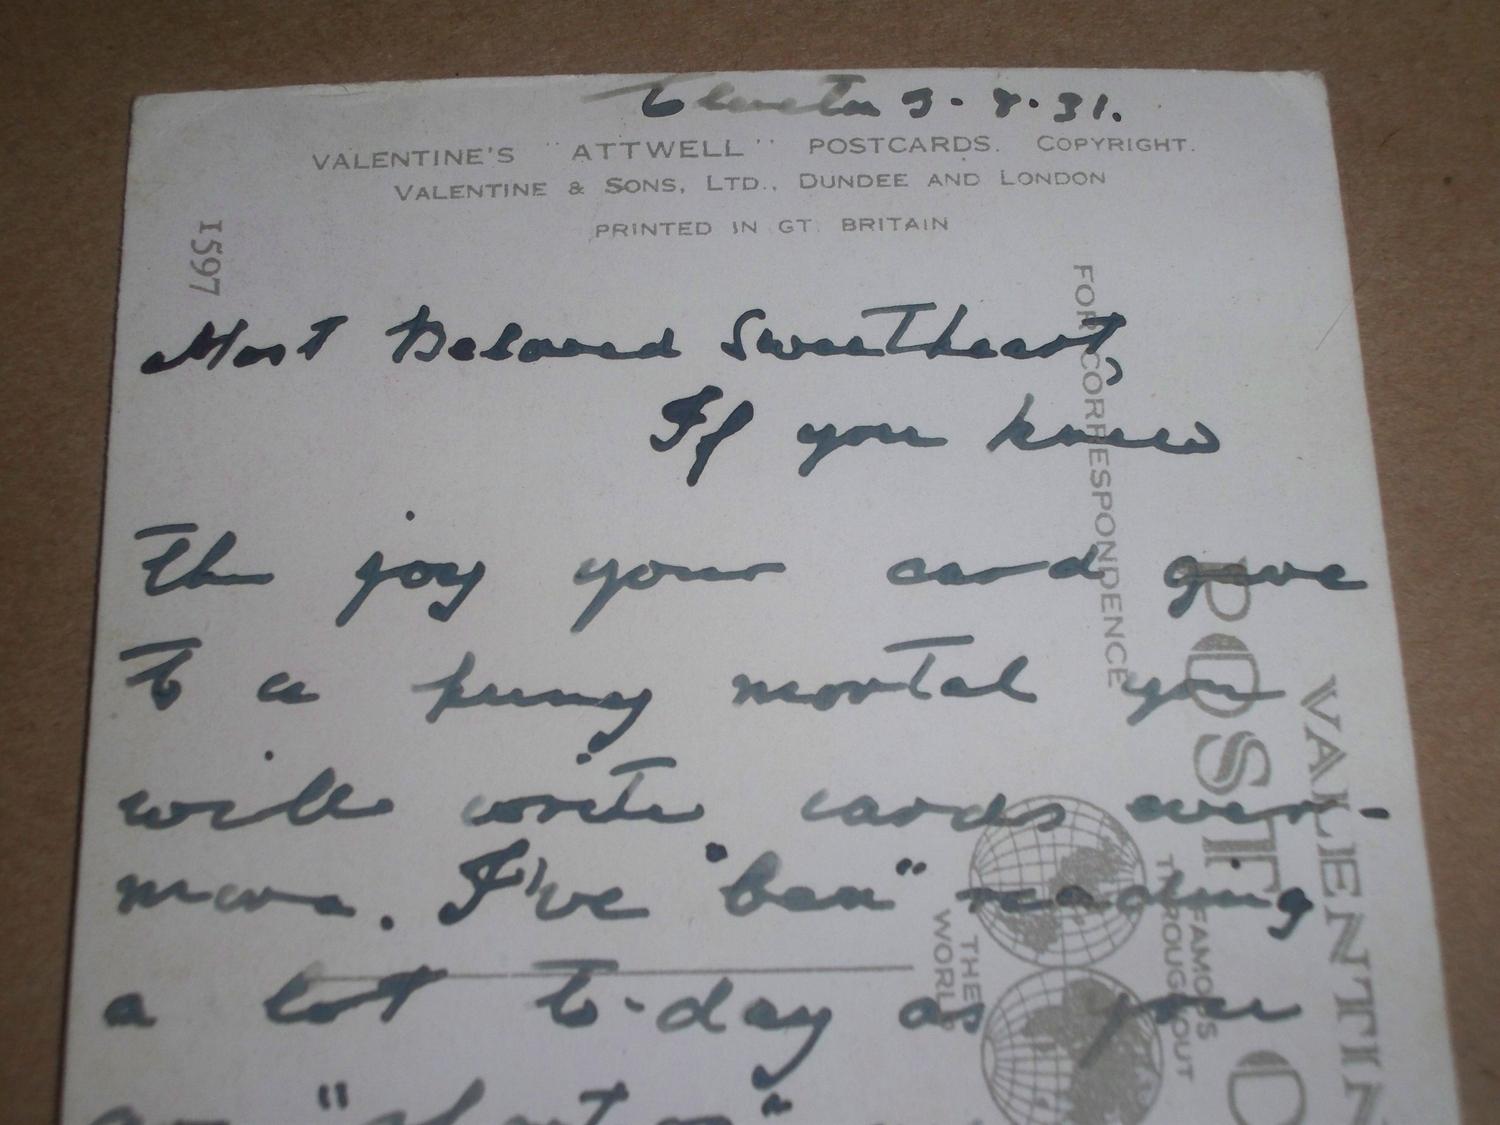 3. 8. 31.
VALENTINE'S "ATTWELL" POSTCARDS. COPYRIGHT.
VALENTINE & SONS, LTD., DUNDEE AND LONDON
PRINTED IN GT. BRITAIN
1597
FOR CORRESPONDENCE
Most Beloved Sweetheart,
If you knew
the joy your card gave
to a puny mortal you
will write cards ever-
more. I've "ben" reading
a lot to-day as you
VALENTIN
POST
FAMOUS
THROUGHOUT
THE
WORLD